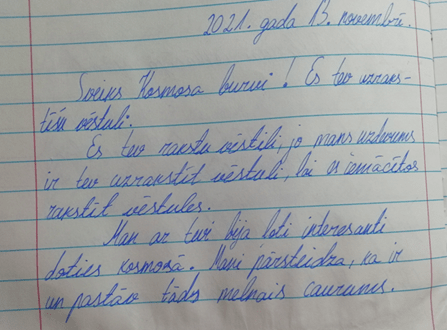 2021. gada 13. novembrī.
Sveiks Kosmosa burvi! Es tev uzrak-
stīšu vēstuli.
Es tev rakstu vēstili, jo mans uzdevums
ir tev uzrakstīt vēstuli, lai es iemācītos
rakstīt vēstules.
Man ar tevi bija ļoti interesanti
doties kosmosā. Mani pārsteidza, ka ir
un pastāv tāds melnais caurums.